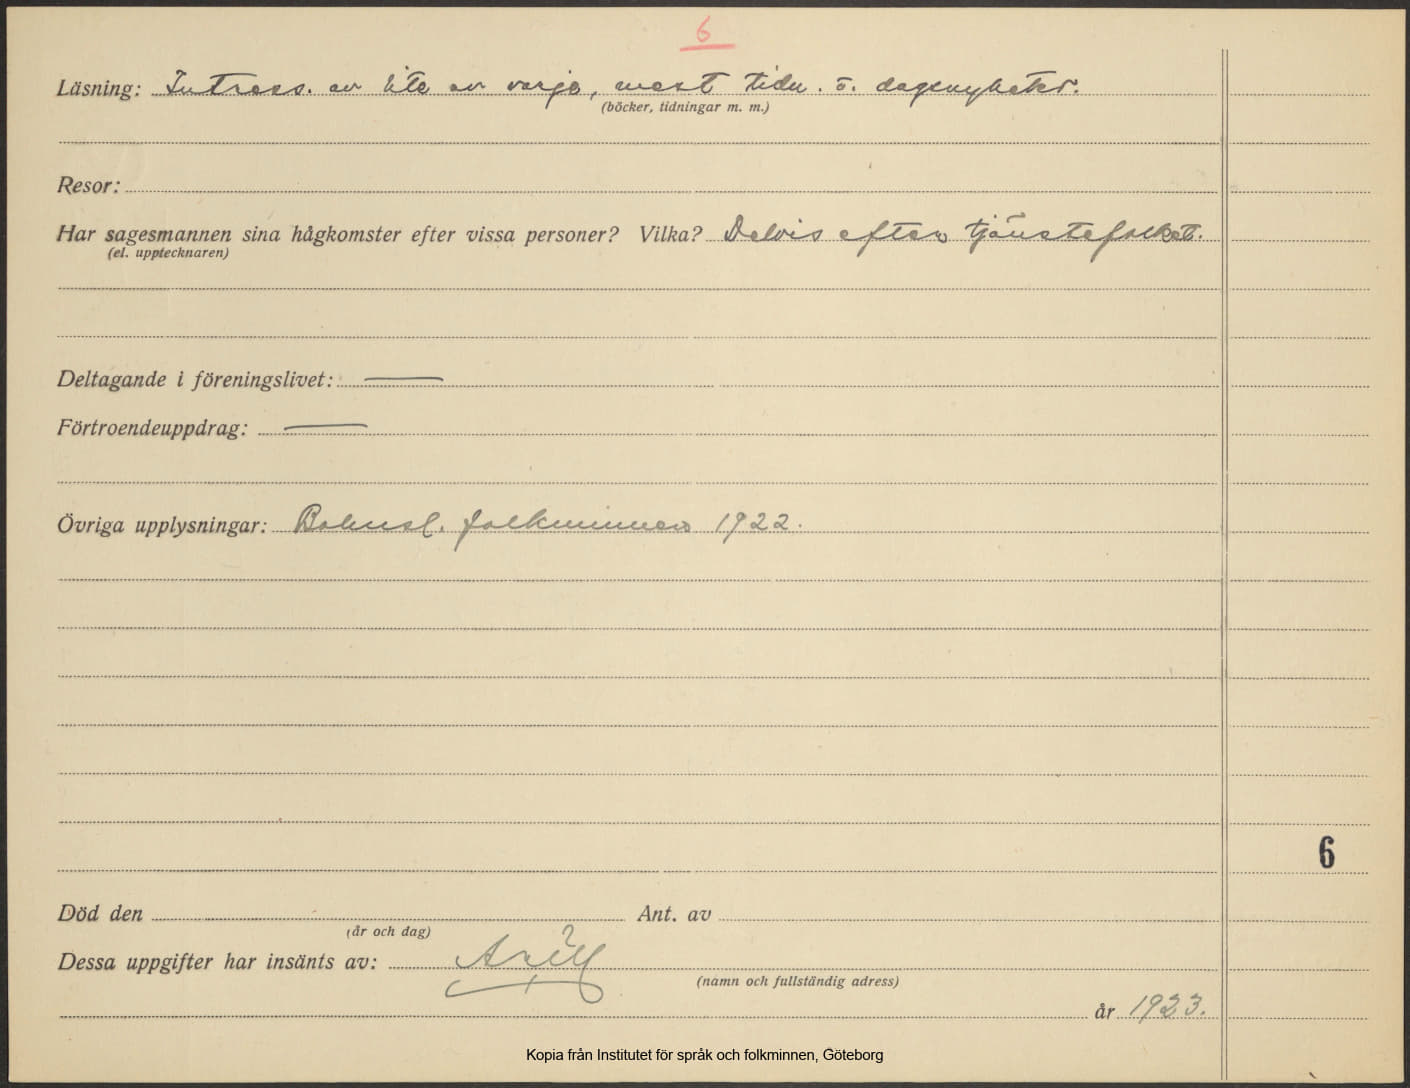 6
Läsning: Intress. av lite av varje, mest tidn. o. dagsnyheter.
(böcker, tidningar m. m.)
Resor:
Har sagesmannen sina hågkomster efter vissa personer? Vilka? Delvis efter tjänstefolket.
(el. upptecknaren)
Deltagande i föreningslivet: —
Förtroendeuppdrag: —
Övriga upplysningar: Bohusl. folkminnen 1922.
6
Död den Ant. av
(år och dag)
Dessa uppgifter har insänts av:
(namn och fullständig adress)
år 1923.
Kopia från Institutet för språk och folkminnen, Göteborg